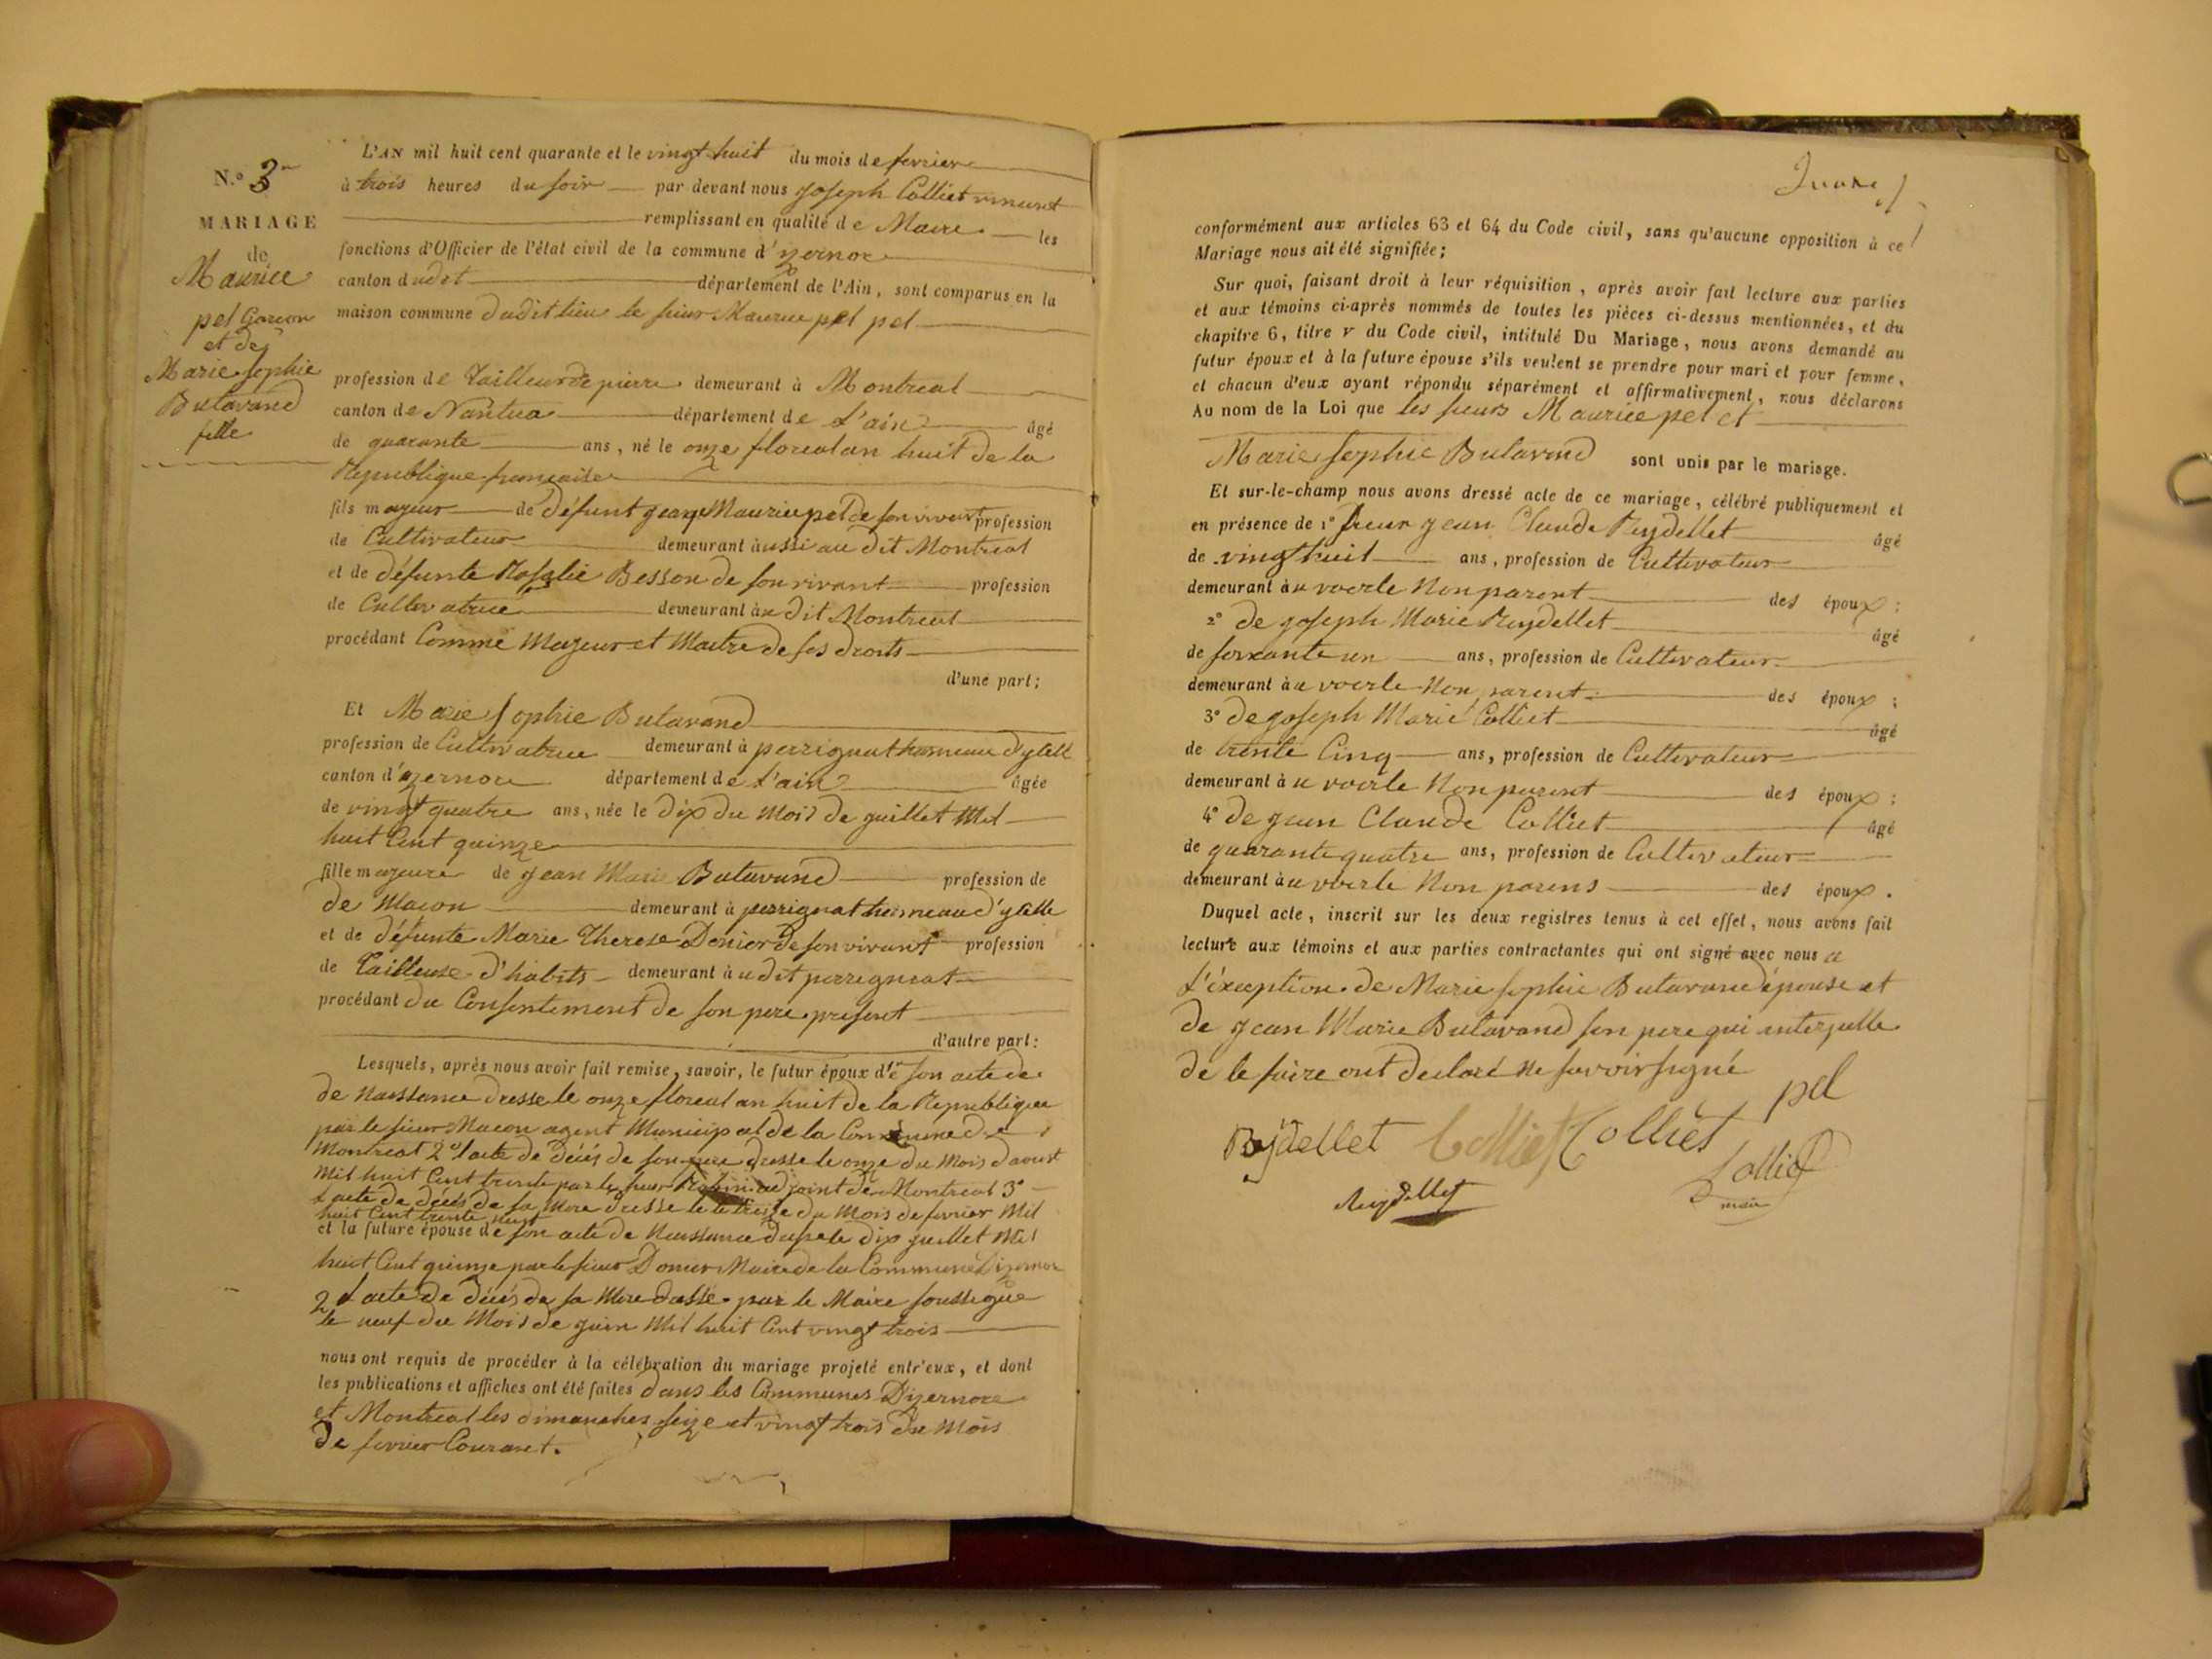 N.o 3
MARIAGE
de
Maurice
pel Garcon
et de
Marie Sophie
Butavand
fille
L'AN mil huit cent quarante et le vingt huit du mois de fevrier
à trois heures du soir par devant nous Joseph Colliet
remplissant en qualité de Maire les
fonctions d'Officier de l'état civil de la commune d'yzernore
canton dudit département de l'Ain, sont comparus en la
maison commune dudit lieu le sieur Maurice pel pel
profession de Tailleur de pierre demeurant à Montreal
canton de Nantua département de L'ain âgé
de quarante ans, né le onze floreal an huit de la
Republique française
fils majeur de défunt jean Maurice pel de son vivant profession
de Cultivateur demeurant aussi au dit Montreal
et de défunte Rosalie Besson de son vivant profession
de Cultivatrice demeurant au dit Montreal
procédant Comme Majeur et Maitre de ses droits
d'une part;
Et Marie Sophie Butavand
profession de Cultivatrice demeurant à perrignat hameau
canton d'yzernore département de L'ain âgée
de vingt quatre ans, née le dix du mois de juillet Mil
huit Cent quinze
fille majeure de jean Marie Butavand profession de
de Macon demeurant à perrignat hameau
et de défunte Marie Therese Donior de son vivant profession
de Tailleuse d'habits demeurant au dit perrignat
procédant du Consentement de son pere present
d'autre part:
Lesquels, après nous avoir fait remise, savoir, le futur époux de son acte de
de Naissance dresse le onze floreal an huit de la Republique
par le sieur Macon agent Municipal de la Commune de
Montreal 2° l'acte de décés de son pere dresse le onze du Mois d'aoust
Mil huit Cent trente par le sieur adjoint de Montreal 3°
L'acte de décés de sa Mere dresse le treize du Mois de fevrier Mil
huit Cent trente
et la future épouse de son acte de Naissance dresse le dix juillet Mil
huit Cent quinze par le sieur Donier Maire de la Commune d'izernore
2 L'acte de décés de sa Mere dressé par le Maire soussigne
le neuf du Mois de juin Mil huit Cent vingt trois
nous ont requis de procéder à la célébration du mariage projeté entr'eux, et dont
les publications et affiches ont été faites dans les Communes D'izernore
et Montreal les dimanches seize et vingt trois du Mois
de fevrier Courant.
conformément aux articles 63 et 64 du Code civil, sans qu'aucune opposition à ce
Mariage nous ait été signifiée;
Sur quoi, faisant droit à leur réquisition, après avoir fait lecture aux parties
et aux témoins ci-après nommés de toutes les pièces ci-dessus mentionnées, et du
chapitre 6, titre v du Code civil, intitulé Du Mariage, nous avons demandé au
futur époux et à la future épouse s'ils veulent se prendre pour mari et pour femme,
et chacun d'eux ayant répondu séparément et affirmativement, nous déclarons
Au nom de la Loi que les sieurs Maurice pel et
Marie Sophie Butavand sont unis par le mariage.
Et sur-le-champ nous avons dressé acte de ce mariage, célébré publiquement et
en présence de 1° sieur jean Claude Reydellet âgé
de vingt huit ans, profession de Cultivateur
demeurant au voerle Non parent des époux;
2° de joseph Marie Reydellet âgé
de soixante un ans, profession de Cultivateur
demeurant au voerle Non parent des époux;
3° de joseph Marie Colliet âgé
de trente Cinq ans, profession de Cultivateur
demeurant au voerle Non parent des époux;
4° de jean Claude Colliet âgé
de quarante quatre ans, profession de Cultivateur
demeurant au voerle Non parens des époux.
Duquel acte, inscrit sur les deux registres tenus à cet effet, nous avons fait
lecture aux témoins et aux parties contractantes qui ont signé avec nous a
L'exception de Marie Sophie Butavand épouse et
de jean Marie Butavand son pere qui interpelle
de le faire ont declaré ne savoir signé
pel
Reydellet Colliet Colliet
Colliet
Reydellet
maire